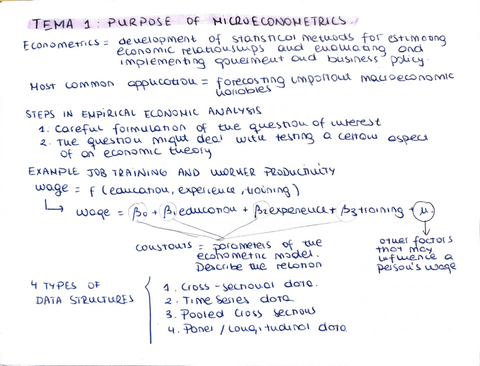 TEMA 1: PURPOSE OF MICROECONOMETRICS.
Econometrics = development of statistical methods for estimating
economic relationships and evaluating and
implementing goverment and business policy.
Most common application = forecasting important macroeconomic
variables
STEPS IN EMPIRICAL ECONOMIC ANALYSIS
1. Careful formulation of the question of interest
2. The question might deal with testing a certain aspect
of an economic theory
EXAMPLE JOB TRAINING AND WORKER PRODUCTIVITY
wage = f (education, experience, training)
↳ wage = β0 + β1education + β2experience + β3training + μ
constants = parameters of the
econometric model.
Describe the relation
other factors
that may
influence a
person's wage
4 TYPES OF
DATA STRUCTURES
1. Cross-sectional data.
2. Time Series data
3. Pooled Cross sections
4. Panel / Longitudinal data